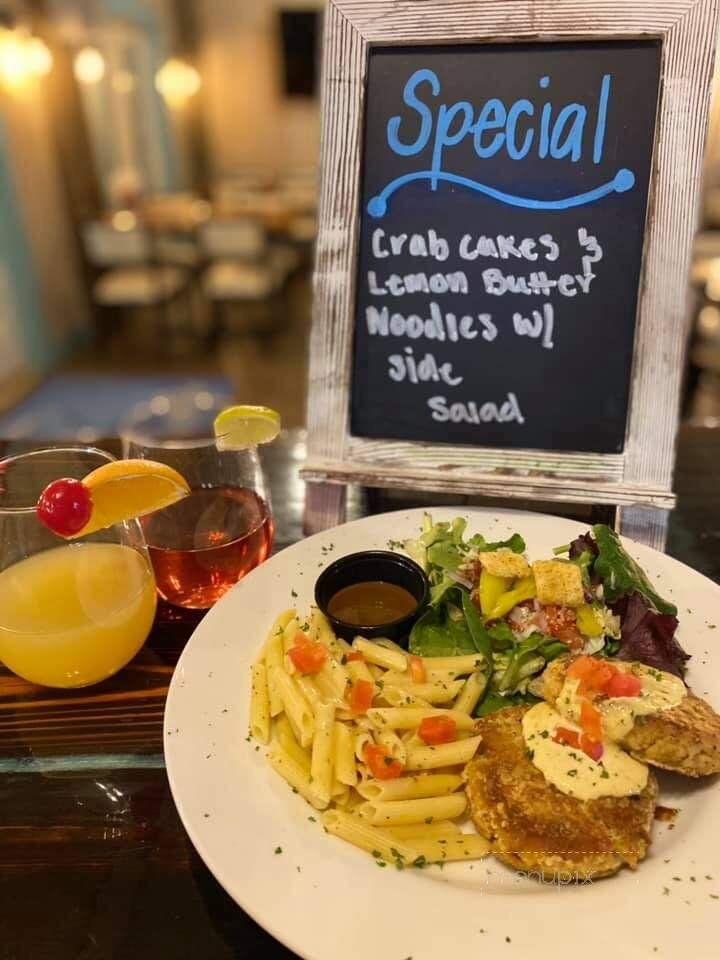 Special
Crab cakes &
Lemon Butter
Noodles w/
side
Salad
menupix